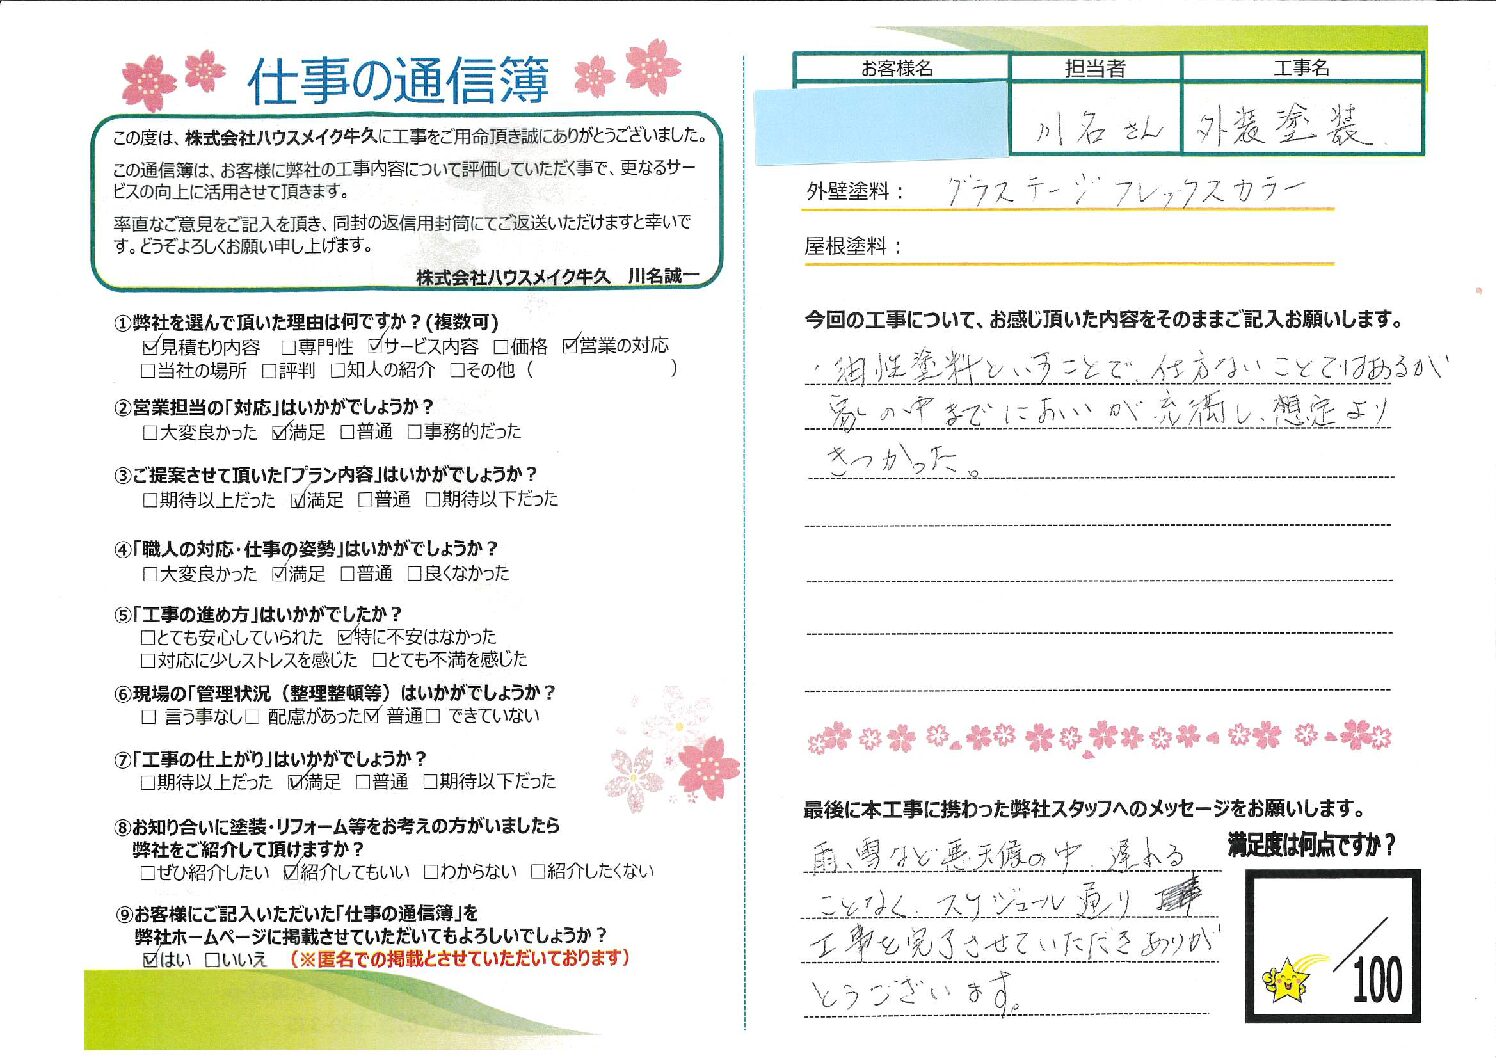 仕事の通信簿
この度は、株式会社ハウスメイク牛久に工事をご用命頂き誠にありがとうございました。
この通信簿は、お客様に弊社の工事内容について評価していただく事で、更なるサー
ビスの向上に活用させて頂きます。
率直なご意見をご記入を頂き、同封の返信用封筒にてご返送いただけますと幸いで
す。どうぞよろしくお願い申し上げます。
株式会社ハウスメイク牛久　川名誠一
①弊社を選んで頂いた理由は何ですか？(複数可)
☑見積もり内容 □専門性 ☑サービス内容 □価格 ☑営業の対応
□当社の場所 □評判 □知人の紹介 □その他（　　　　　　　）
②営業担当の「対応」はいかがでしょうか？
□大変良かった ☑満足 □普通 □事務的だった
③ご提案させて頂いた「プラン内容」はいかがでしょうか？
□期待以上だった ☑満足 □普通 □期待以下だった
④「職人の対応・仕事の姿勢」はいかがでしょうか？
□大変良かった ☑満足 □普通 □良くなかった
⑤「工事の進め方」はいかがでしたか？
□とても安心していられた ☑特に不安はなかった
□対応に少しストレスを感じた □とても不満を感じた
⑥現場の「管理状況（整理整頓等）はいかがでしょうか？
□ 言う事なし□ 配慮があった☑ 普通□ できていない
⑦「工事の仕上がり」はいかがでしょうか？
□期待以上だった ☑満足 □普通 □期待以下だった
⑧お知り合いに塗装・リフォーム等をお考えの方がいましたら
弊社をご紹介して頂けますか？
□ぜひ紹介したい ☑紹介してもいい □わからない □紹介したくない
⑨お客様にご記入いただいた「仕事の通信簿」を
弊社ホームページに掲載させていただいてもよろしいでしょうか？
☑はい □いいえ （※匿名での掲載とさせていただいております）
お客様名 担当者 工事名
川名さん 外装塗装
外壁塗料： グラステージフレックスカラー
屋根塗料：
今回の工事について、お感じ頂いた内容をそのままご記入お願いします。
・油性塗料ということで、仕方ないことではあるが
家の中までにおいが充満し、想定より
きつかった。
最後に本工事に携わった弊社スタッフへのメッセージをお願いします。
雨、雪など悪天候の中、遅れる
ことなく、スケジュール通り
工事を完了させていただきありが
とうございます。
満足度は何点ですか？
／100